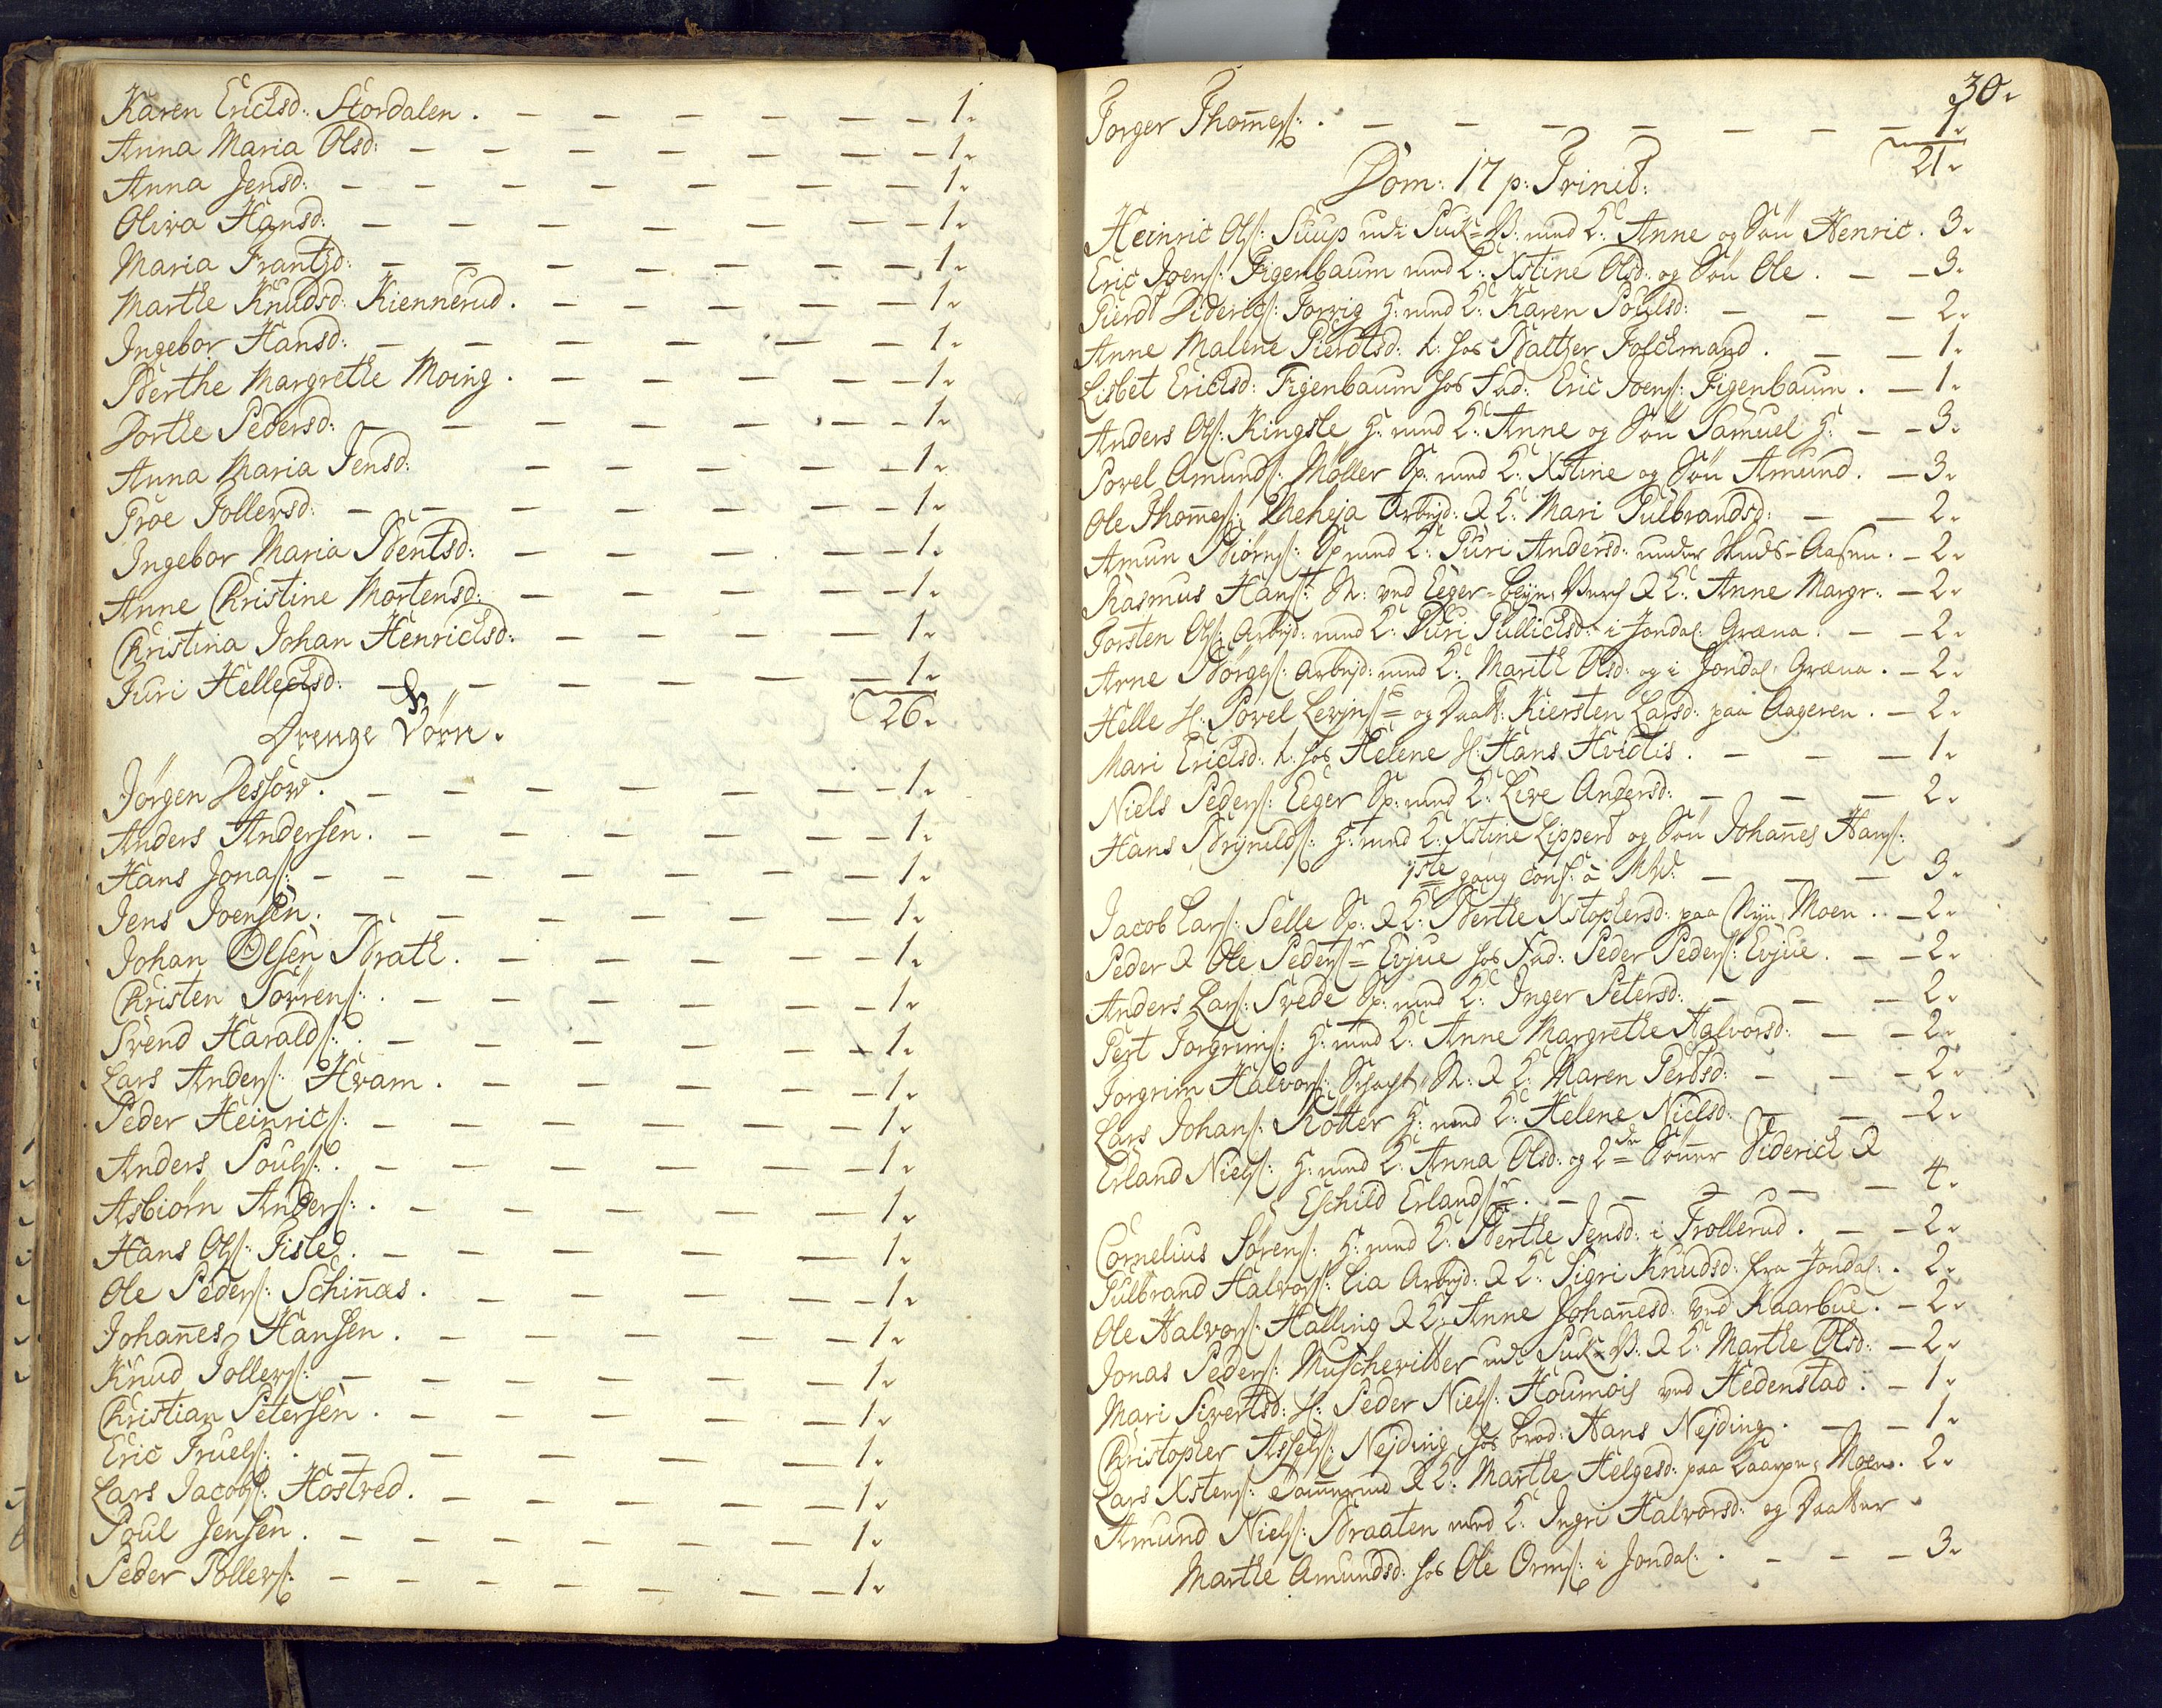 Karen Ericksd: Stordalen. — — — — — — 1.
Anna Maria Olsd: — — — — — — — 1.
Anna Jensd: — — — — — — — — 1.
Oliva Hansd: — — — — — — — 1.
Maria Frantzd: — — — — — — — 1.
Marthe Knudsd: Kiennerud. — — — — — 1.
Ingebor Hansd: — — — — — — — 1.
Berthe Margrethe Moing. — — — — — 1.
Dorthe Pedersd: — — — — — — — 1.
Anna Maria Jensd: — — — — — 1.
Proe Tollersd: — — — — — — — 1.
Ingebor Maria Bentsd: — — — — — 1.
Anne Christine Mortensd: — — — — — 1.
Christina Johan Henricksd: — — — — — 1.
Turi Hellecksd: — — — — — — — 1.
26.
Drenge Börn.
Jörgen Dessow. — — — — — — — 1.
Anders Andersen. — — — — — — 1.
Hans Jonas: — — — — — — — 1.
Jens Joensen. — — — — — — — 1.
Johan Olsen Brath. — — — — — 1.
Christen Sörrens: — — — — — — 1.
Svend Haralds: — — — — — — 1.
Lars Anders: Hvam. — — — — — 1.
Peder Heinrics: — — — — — — 1.
Anders Pouls: — — — — — — — 1.
Asbiörn Anders: — — — — — — 1.
Hans Ols: Fisle. — — — — — — 1.
Ole Peders: Schinnæs. — — — — — 1.
Johannes Hansen. — — — — — — 1.
Knud Tollers: — — — — — — — 1.
Christian Petersen. — — — — — — 1.
Eric Truels: — — — — — — — 1.
Lars Jacobs: Hostved. — — — — — 1.
Poul Jensen. — — — — — — — 1.
Peder Tollers: — — — — — — — 1.
30.
Torger Thomes: — — — — — — — 1.
21.
Dom: 17 p: Trinit:
Heinric Ols: Suup udi Puk-V: med K: Anne og Sön Henric. 3.
Eric Joens: Figenbaum med K: Xstine Olsd: og Sön Ole. — — 3.
Pierdt Diderics: Torvig G: med K: Karen Poulsd: — — — 2.
Anne Malene Pierdtsd: t: hos Baltzer Folckmand. — — 1.
Lisbet Ericksd: Figenbaum hos Fad: Eric Joens: Figenbaum. — 1.
Anders Ols: Kingsle G: med K: Anne og Sön Samuel G: — — 3.
Povel Amunds: Möller Sp: med K: Xstine og Sön Amund. — 3.
Ole Thomes: Arbejd: & K: Mari Gulbrandsd: — — 2.
Amun Biörns: Sp med K: Guri Andersd: under Knuds-Aasen. — 2.
Rasmus Hans: M: ved Eeger- & K: Anne Margr: — 2.
Torsten Ols: Arbejd: med K: Guri Gullicksd: i Jondal: Græna. — — 2.
Arne Börges: Arbejd: med K: Marith Olsd: og i Jondal: Græna. — 2.
Helle H: Povel Levins: og Daatt: Kiersten Larsd: paa Aageren. — 2.
Mari Ericksd: t: hos Helene H: Hans Hvidtis. — — — 1.
Niels Peders: Eeger Sp: med K: Live Andersd: — — — 2.
Hans Brynilds: G: med K: Xstine Lippert og Sön Johannes Hans:
1ste gang conf: a MW: — — — 3.
Jacob Lars: Selle Sp: & K: Berthe Xstophersd: paa Nye Moen. — 2.
Peder & Ole Peders: Evjue hos Fad: Peder Peders: Evjue. — — 2.
Anders Lars: Svede Sp: med K: Inger Petersd: — — — 2.
Pert Torgrims: G: med K: Anne Margrethe Halvorsd: — — 2.
Torgrim Halvors: M: & K: Maren Pertsd: — — — 2.
Lars Johans: Rötter G: med K: Helene Nielsd: — — — 2.
Erland Niels: G: med K: Anna Olsd: og 2de Sönner Diderich &
Eschild Erlands: — — — — — 4.
Cornelius Sörens: G: med K: Berthe Jensd: i Trollerud. — — 2.
Gulbrand Halvors: Lia Arbejd: & K: Sigri Knudsd: fra Jondal: . 2.
Ole Halvors: Halling & K: Anne Johannesd: ved Kaarbue. — 2.
Jonas Peders: Muscheritter udi Puk-V: & K: Marthe Olsd: — 2.
Mari Sivertsd: H: Peder Niels: Houmois ved Hedenstad. — 1.
Christopher Assels: Nejding hos brod: Hans Nejding. — — 1.
Lars Xstens: & K: Marthe Helgesd: paa Moen. 2.
Amund Niels: Braaten med K: Ingri Halvorsd: og Daatter
Marthe Amundsd: hos Ole Orms: i Jondal: — — — 3.